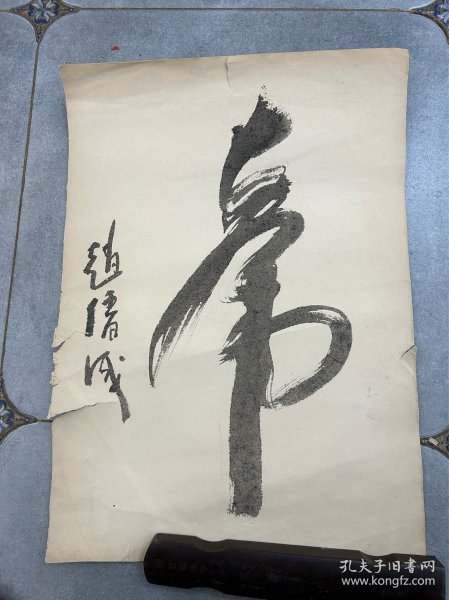 虎
趙清成
孔夫子旧书网
www.kongfz.com